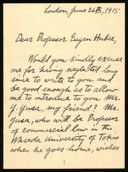 London, June 26th, 1915
Dear Professor Eugen Huber,
Would you kindly excuse
me for having neglected long
since to write to you and
be good enough as to allow
me to introduce to you Mr.
J. Yusa, my friend? Mr.
Yusa, who will be Professor
of commercial law in the
Waseda University of Tokio
when he goes home, wishes